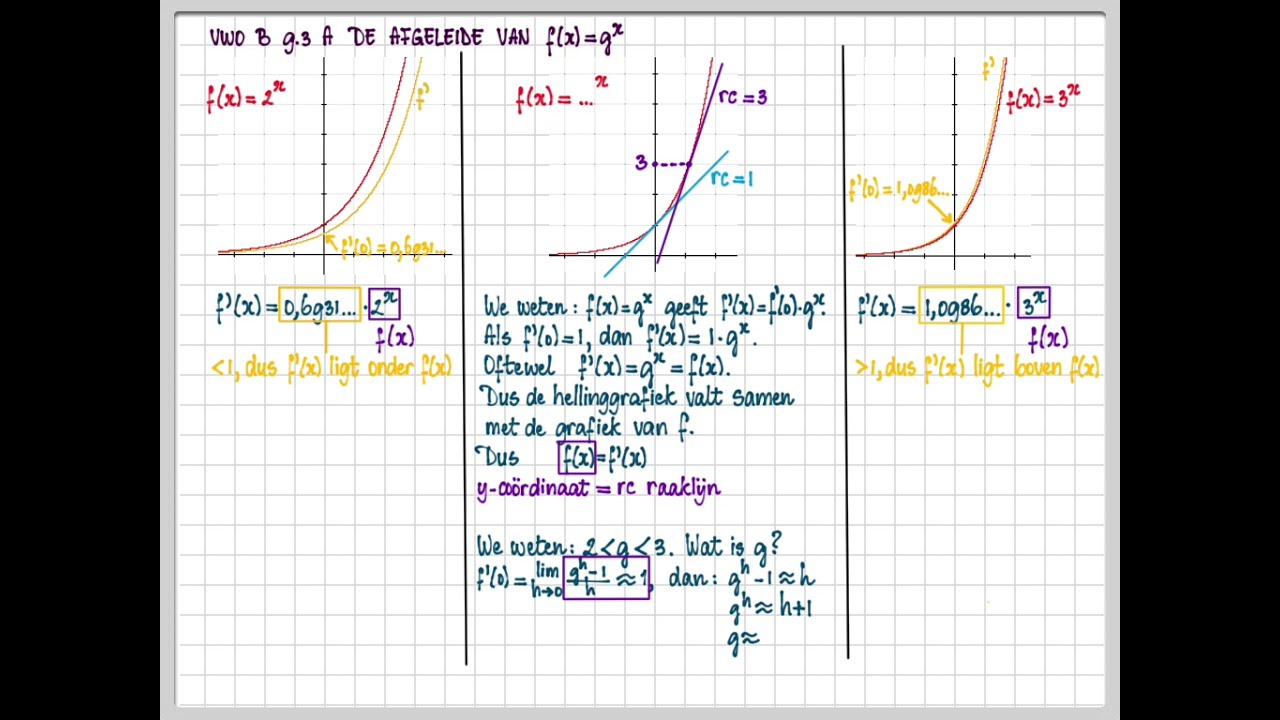 VWO B 9.3 A DE AFGELEIDE VAN f(x)=g^x
f(x)=2^x
f'
f'(0)=0,6931...
f'(x)=0,6931...·2^x
f(x)
<1, dus f'(x) ligt onder f(x)
f(x)=...^x
rc=3
3
rc=1
We weten: f(x)=g^x geeft f'(x)=f'(0)·g^x.
Als f'(0)=1, dan f'(x)=1·g^x.
Oftewel f'(x)=g^x=f(x).
Dus de hellinggrafiek valt samen
met de grafiek van f.
Dus f(x)=f'(x)
y-coördinaat = rc raaklijn
We weten: 2<g<3. Wat is g?
f'(0)=lim h→0 (g^h-1)/h ≈1, dan: g^h-1≈h
g^h≈h+1
g≈
f'
f(x)=3^x
f'(0)=1,0986...
f'(x)=1,0986...·3^x
f(x)
>1, dus f'(x) ligt boven f(x)